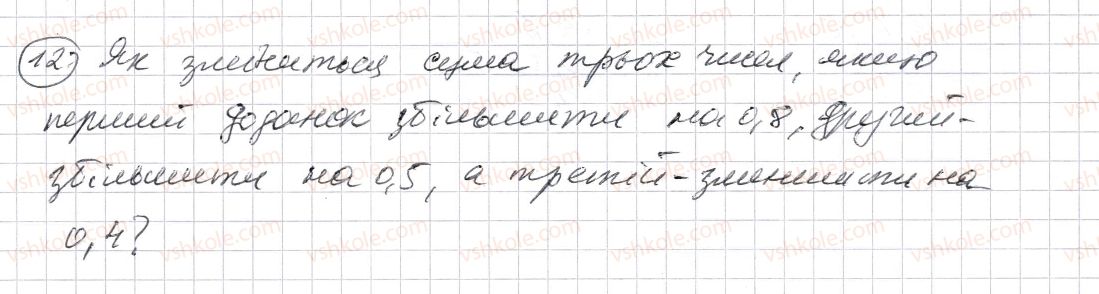 12) Як зміниться сума трьох чисел, якщо
перший доданок збільшити на 0,8, другий -
збільшити на 0,5, а третій - зменшити на
0,4?